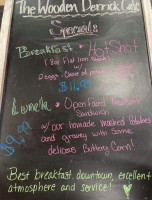 The Wooden Derrick Cafe
Specials
Breakfast • Hot Shot
(8oz Flat Iron Steak)
w/
2 eggs - Choice of
$11.99
Lunch • Open Faced
Sandwich
w/ our homade mashed Potatoes
$9.99
and gravey with some
delicous Buttery Corn!
Best breakfast, downtown, excellent
atmosphere and service!